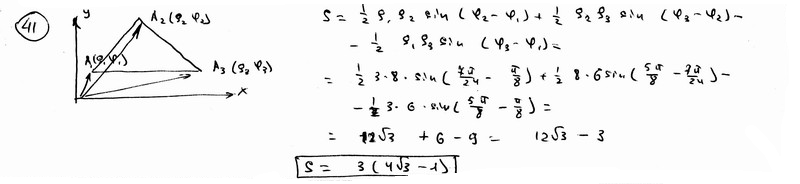 41
y
A₂ (ρ₂ φ₂)
A(ρ₁ φ₁)
A₃ (ρ₃ φ₃)
x
S = 1/2 ρ₁ ρ₂ sin (φ₂ - φ₁) + 1/2 ρ₂ ρ₃ sin (φ₃ - φ₂) -
- 1/2 ρ₁ ρ₃ sin (φ₃ - φ₁) =
= 1/2 3·8· sin (7π/24 - π/8) + 1/2 8·6 sin (5π/8 - 7π/24) -
- 1/2 3·6 · sin (5π/8 - π/8) =
= 12√3 + 6 - 9 = 12√3 - 3
S = 3 (4√3 - 1)